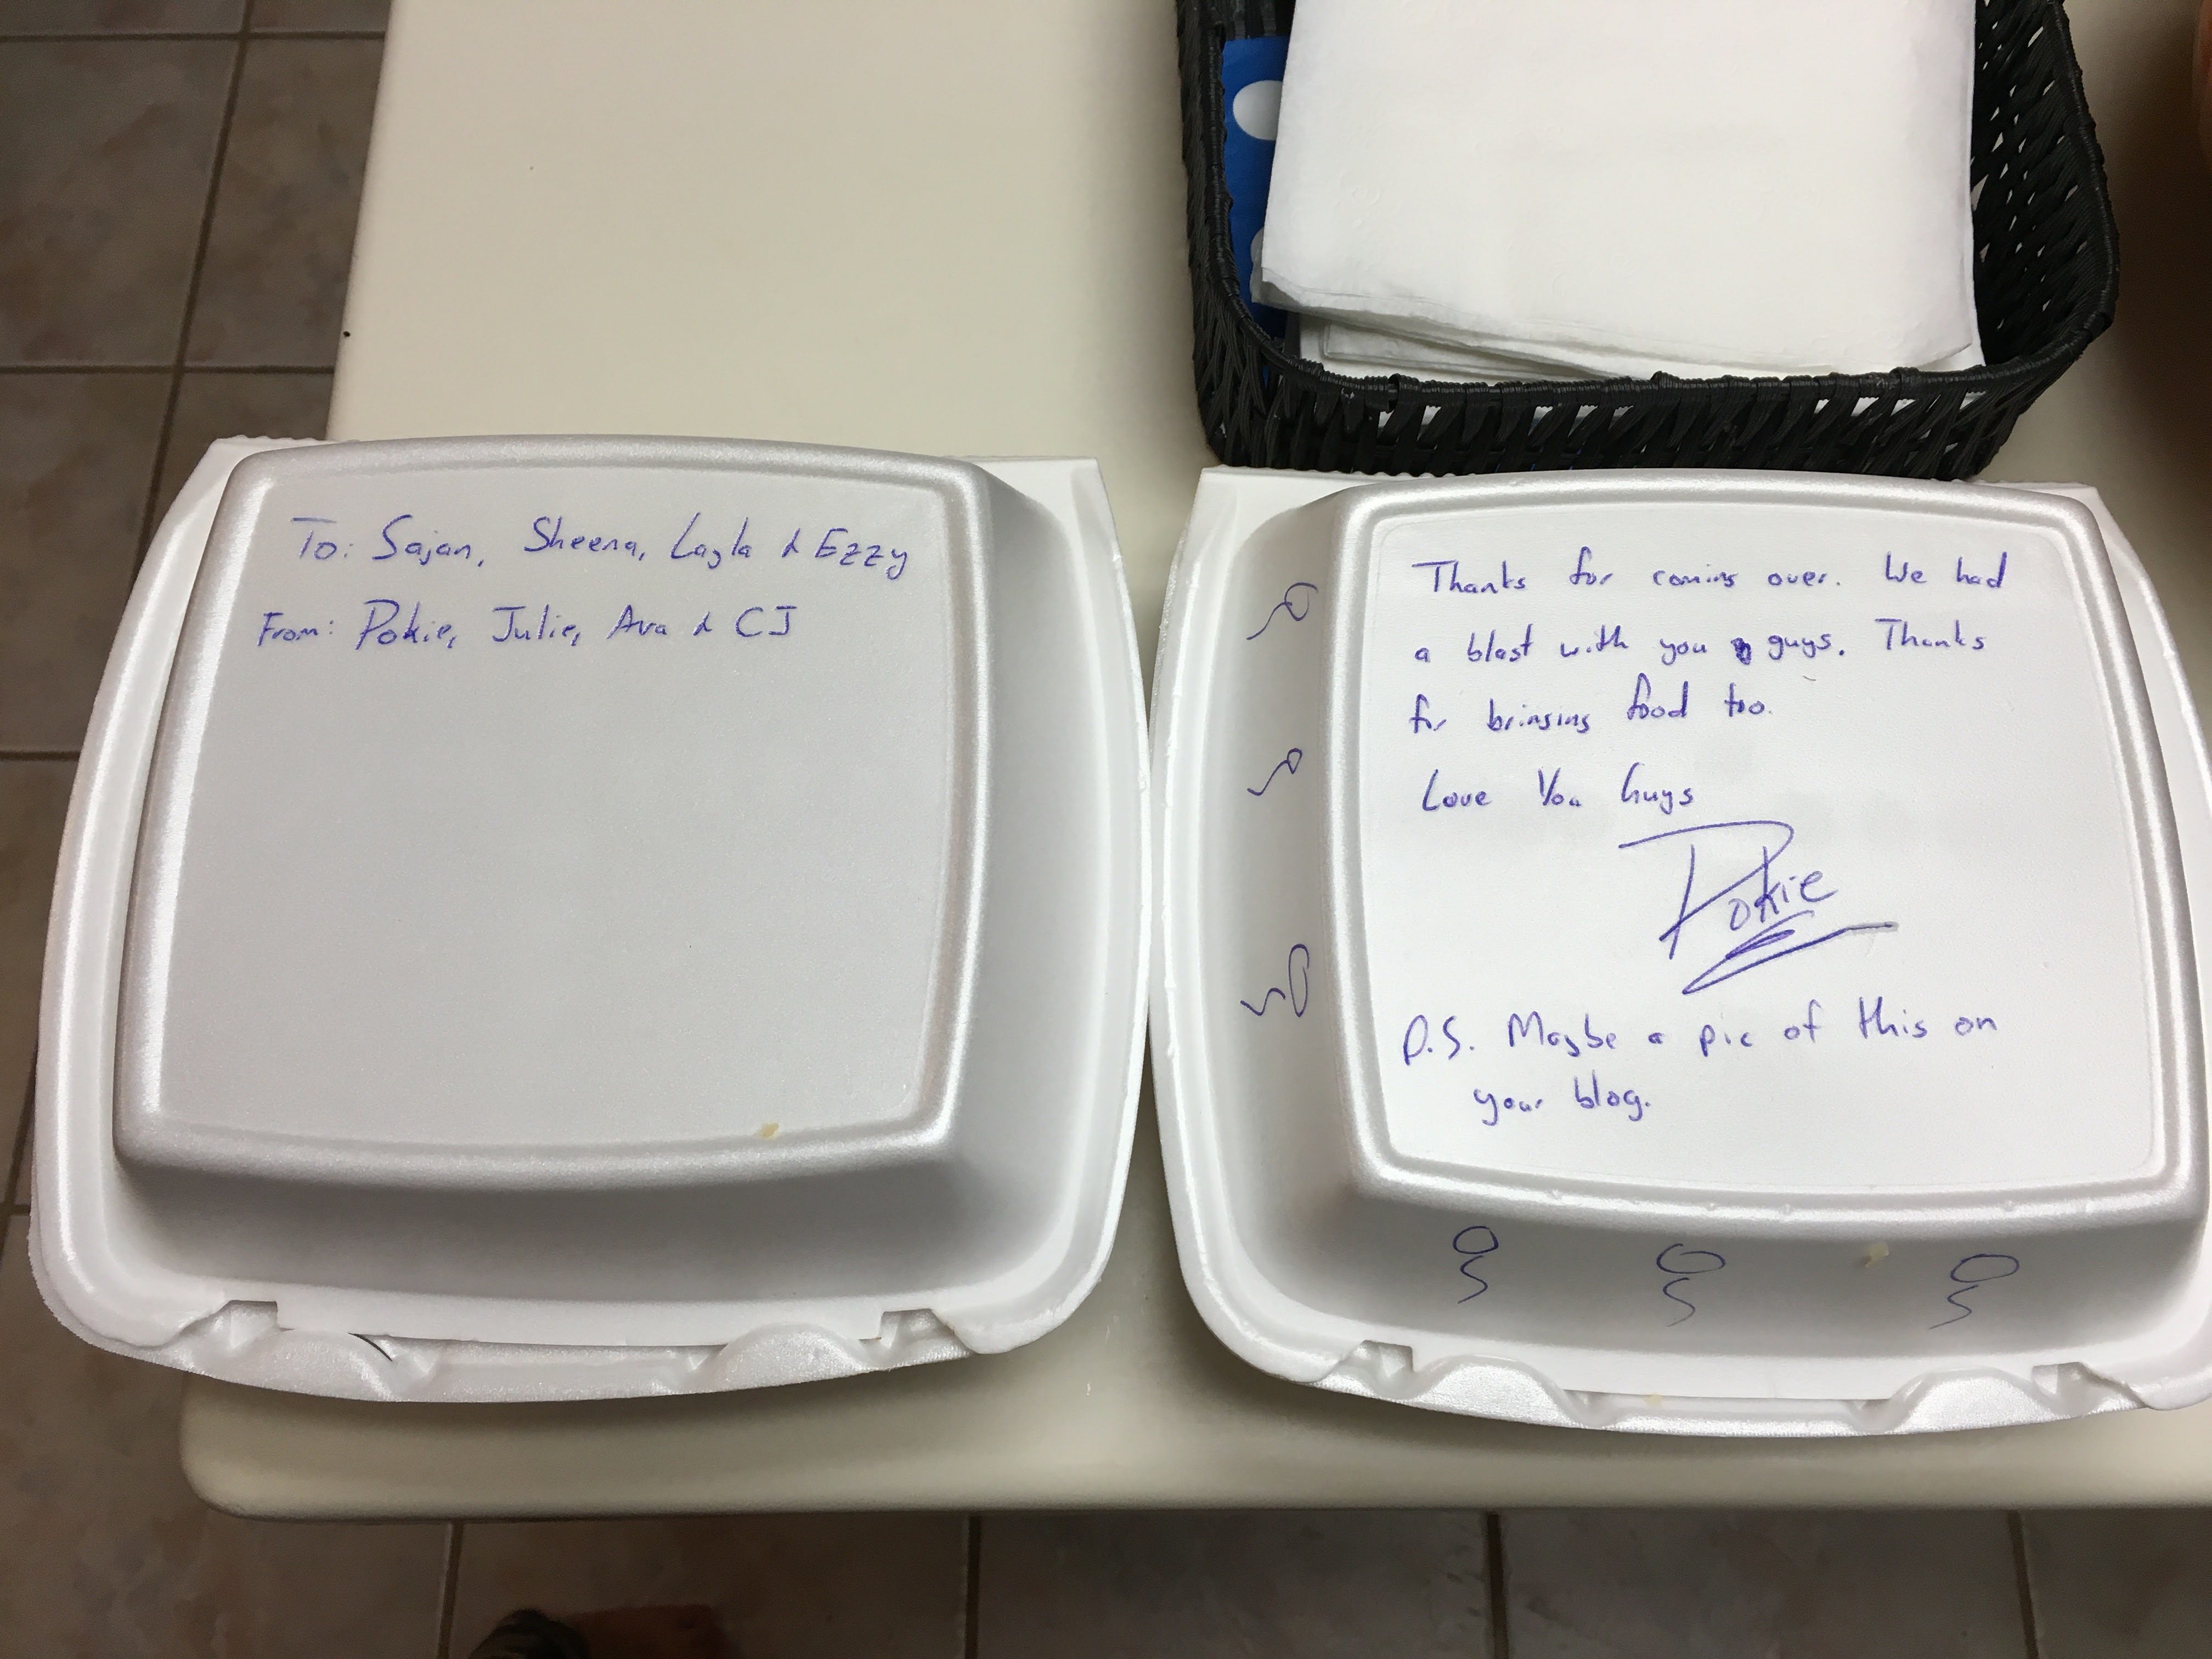 To: Sajan, Sheena, Layla & Ezzy
From: Pokie, Julie, Ava & CJ
Thanks for coming over. We had
a blast with you guys. Thanks
for bringing food too.
Love You Guys
Pokie
P.S. Maybe a pic of this on
your blog.